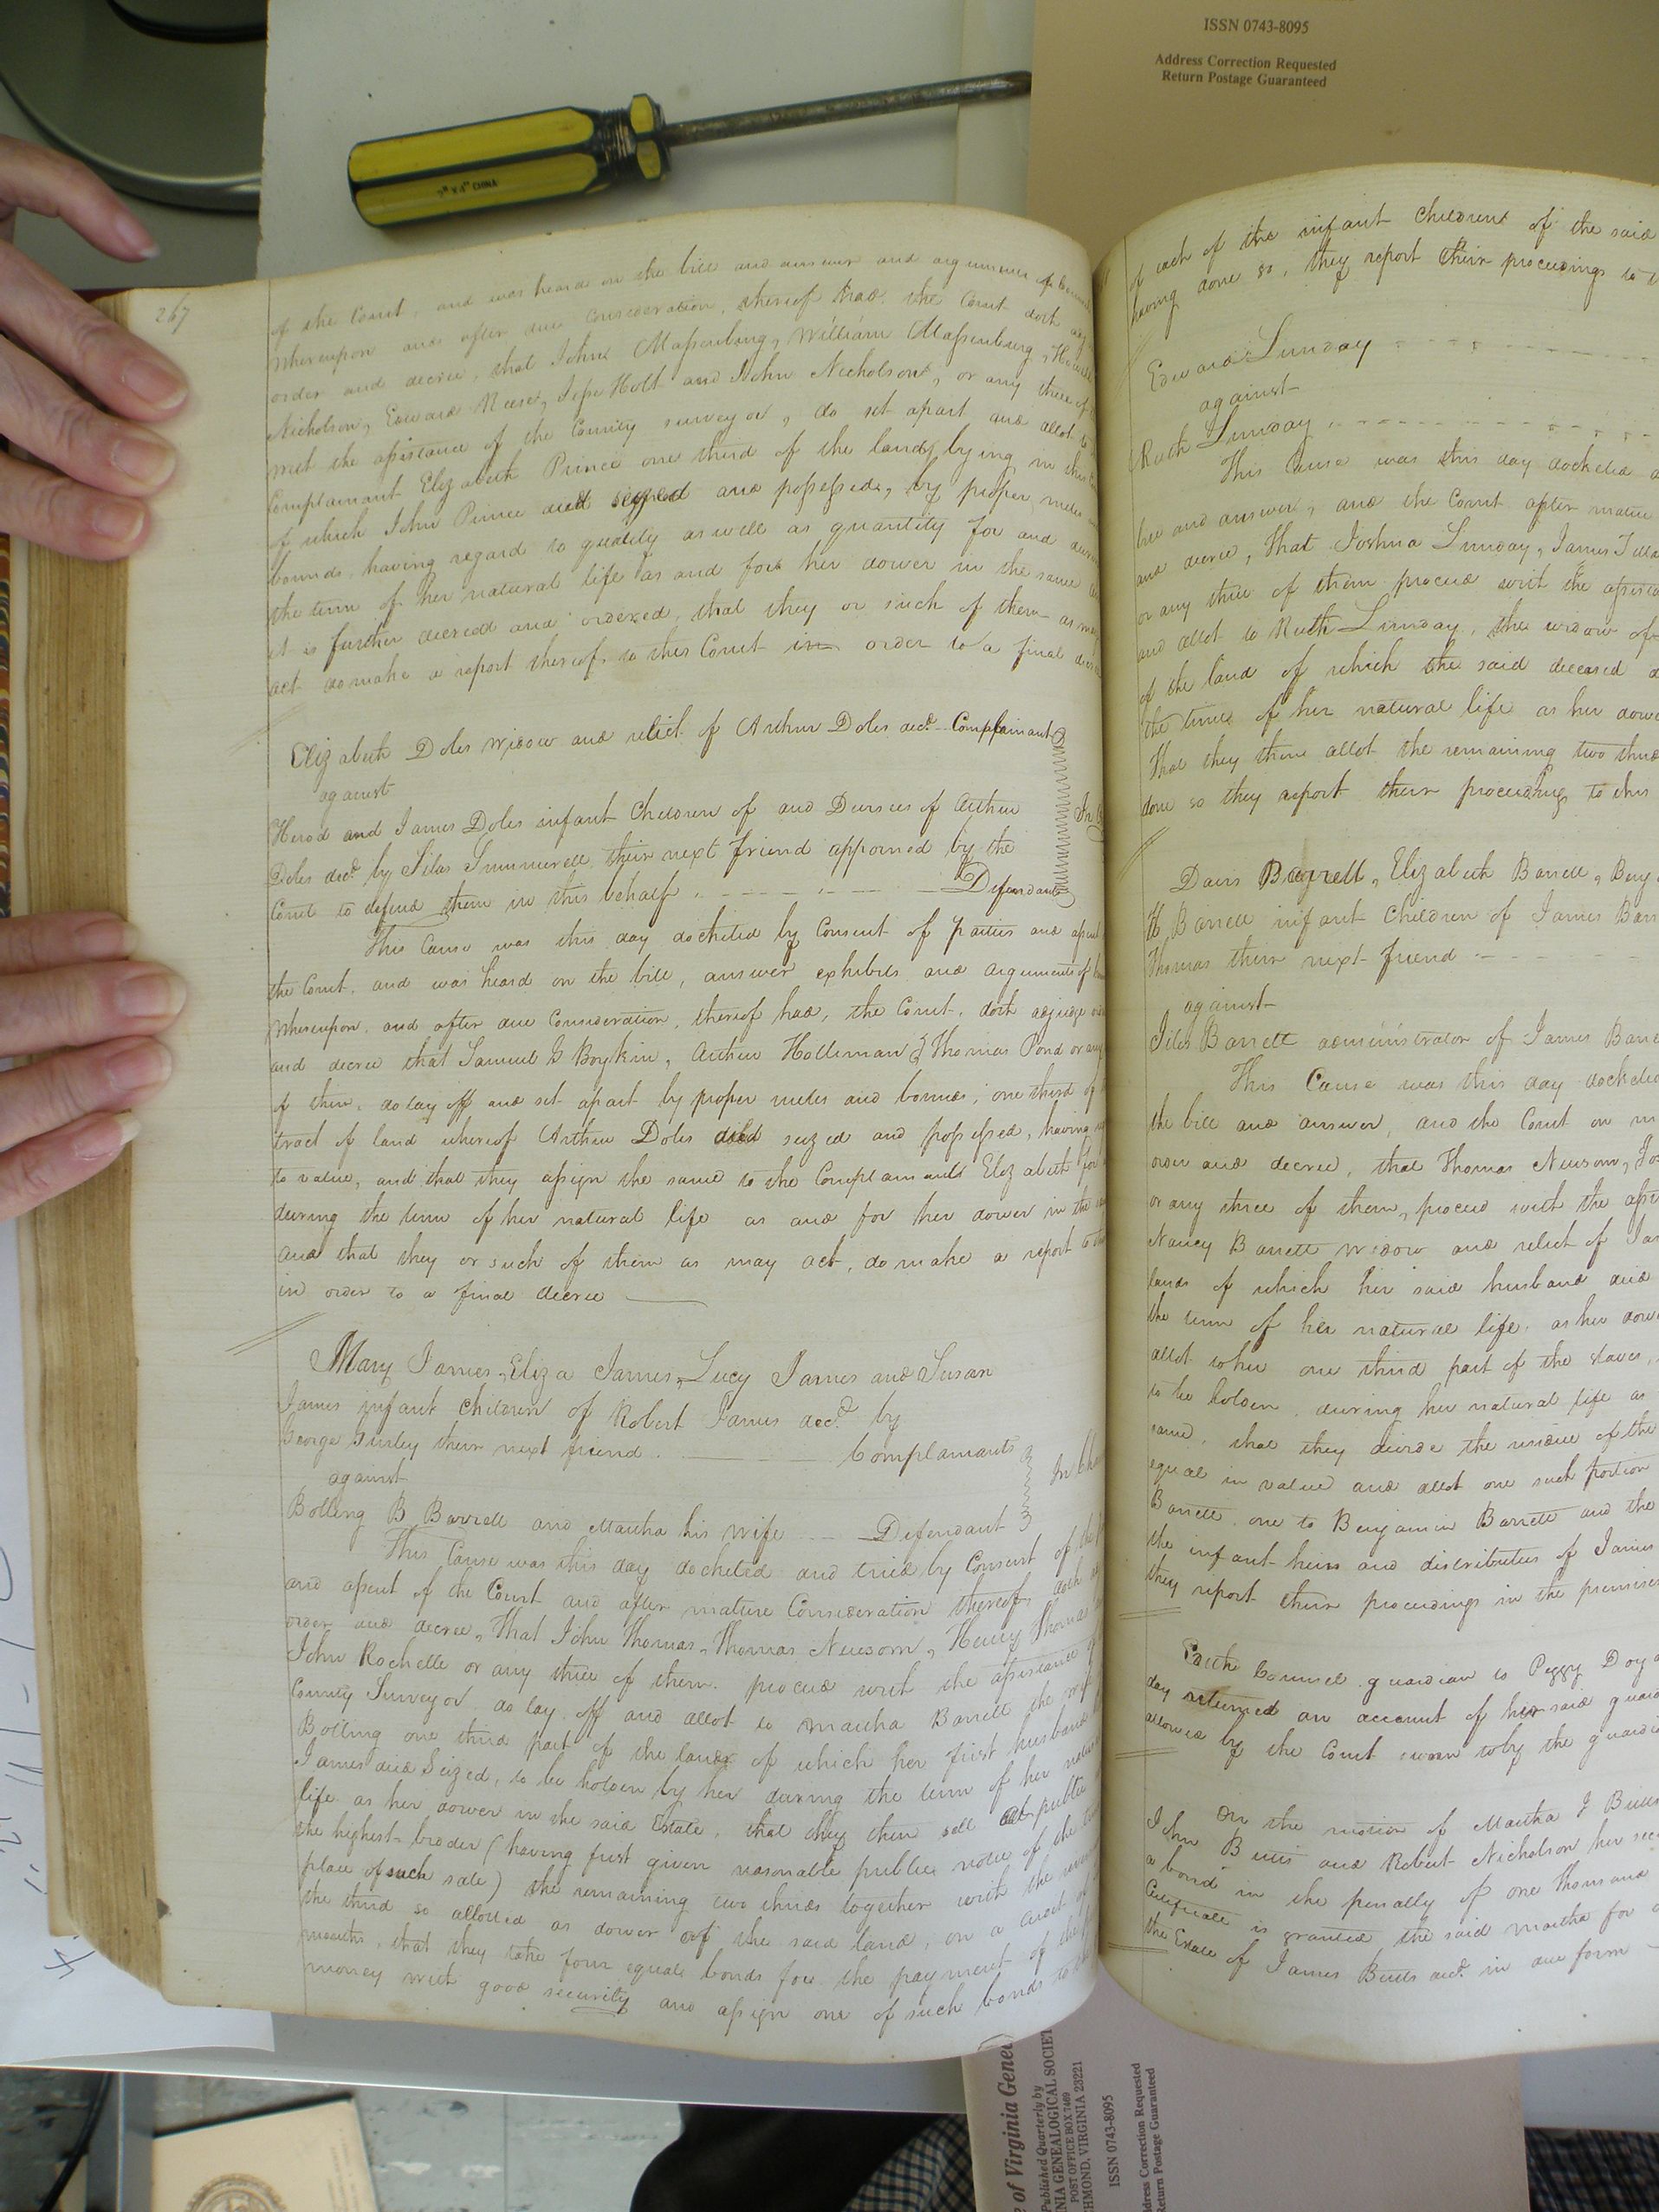 ISSN 0743-8095
Address Correction Requested
Return Postage Guaranteed
CHINA
267
of the Court, and was heard on the bill and answer and arguments of
Whereupon and after due consideration, thereof had, the Court doth
order and decree, that John Massenburg, William Massenburg,
Nicholson, Edward Reese, Jesse Holt and John Nicholson, or any three of
with the assistance of the County surveyor, do set apart and allot to
Complainant Elizabeth Prince one third of the lands lying in this
of which John Prince died seized and possessed, by proper metes
bounds, having regard to quality as well as quantity for and during
the term of her natural life as and for her dower in the same
it is further decreed and ordered, that they or such of them as may
act do make a report thereof to this Court in order to a final decree
Elizabeth Doles widow and relict of Arthur Doles decd. Complainant
against
Herod and James Doles infant Children of and Devisees of Arthur
Doles decd. by Silas Summerell their next friend appointed by the
Court to defend them in this behalf Defendants
This Cause was this day docketed by Consent of parties and assent
the Court, and was heard on the bill, answer exhibits and arguments of
Whereupon, and after due Consideration, thereof had, the Court, doth adjudge
and decree that Samuel B Boykin, Arthur Holleman & Thomas Pond or any
of them, do lay off and set apart by proper metes and bounds, one third of
tract of land whereof Arthur Doles died seized and possessed, having
to value, and that they assign the same to the Complainant Elizabeth for
during the term of her natural life as and for her dower in the
And that they or such of them as may act, do make a report to
in order to a final decree
Mary James, Eliza James, Lucy James and Susan
James infant Children of Robert James decd. by
George Gurley their next friend Complainants
against
Bolling B Barrett and Martha his wife Defendant
This Cause was this day docketed and tried by Consent of
and assent of the Court and after mature Consideration thereof, doth
order and decree, That John Thomas, Thomas Newsom, Henry Thomas
John Rochelle or any three of them, proceed with the assistance of
County Surveyor do lay off and allot to Martha Barrett the wife
Bolling one third part of the land of which her first husband
James died Seized, to be holden by her during the term of her natural
life as her dower in the said Estate, that they then sell at public
the highest bidder (having first given reasonable public notice of the
place of such sale) the remaining two thirds together with the
the third so allotted as dower of the said land, on a credit of
months, that they take four equal bonds for the payment of the
money with good security and assign one of such bonds to
of each of the infant Children of the said
having done so, they report their proceedings to
Edward Lunday
against
Ruth Lunday
This Cause was this day docketed
bill and answer, and the Court after mature
and decree, That Joshua Lunday, James
or any three of them proceed with the
and allot to Ruth Lunday, the widow of
of the land of which the said deceased
the time of her natural life as her dower
That they then allot the remaining two thirds
done so they report their proceedings to this
Davis Barrett, Elizabeth Barrett,
H Barrett infant Children of James
Thomas their next friend
against
Giles Barrett administrator of James
This Cause was this day docketed
the bill and answer, and the Court on
order and decree, that Thomas Newsom,
or any three of them, proceed with the
Nancy Barrett widow and relict of
lands of which her said husband died
the term of her natural life, as her dower
allot to her one third part of the slaves,
to be holden during her natural life as
same, that they divide the residue of the
equal in value and allot one such portion
Barrett, one to Benjamin Barrett and the
the infant heirs and distributees of James
they report their proceedings in the premises
guardian to Peggy
day returned an account of her said
allowed by the Court sworn to by the
On the motion of Martha J
John Butts and Robert Nicholson her
a bond in the penalty of one thousand
Certificate is granted the said Martha for
the Estate of James Butts decd. in due form
of Virginia
Published Quarterly by
GENEALOGICAL SOCIETY
POST OFFICE BOX 7469
VIRGINIA 23221
ISSN 0743-8095
Address Correction Requested
Return Postage Guaranteed